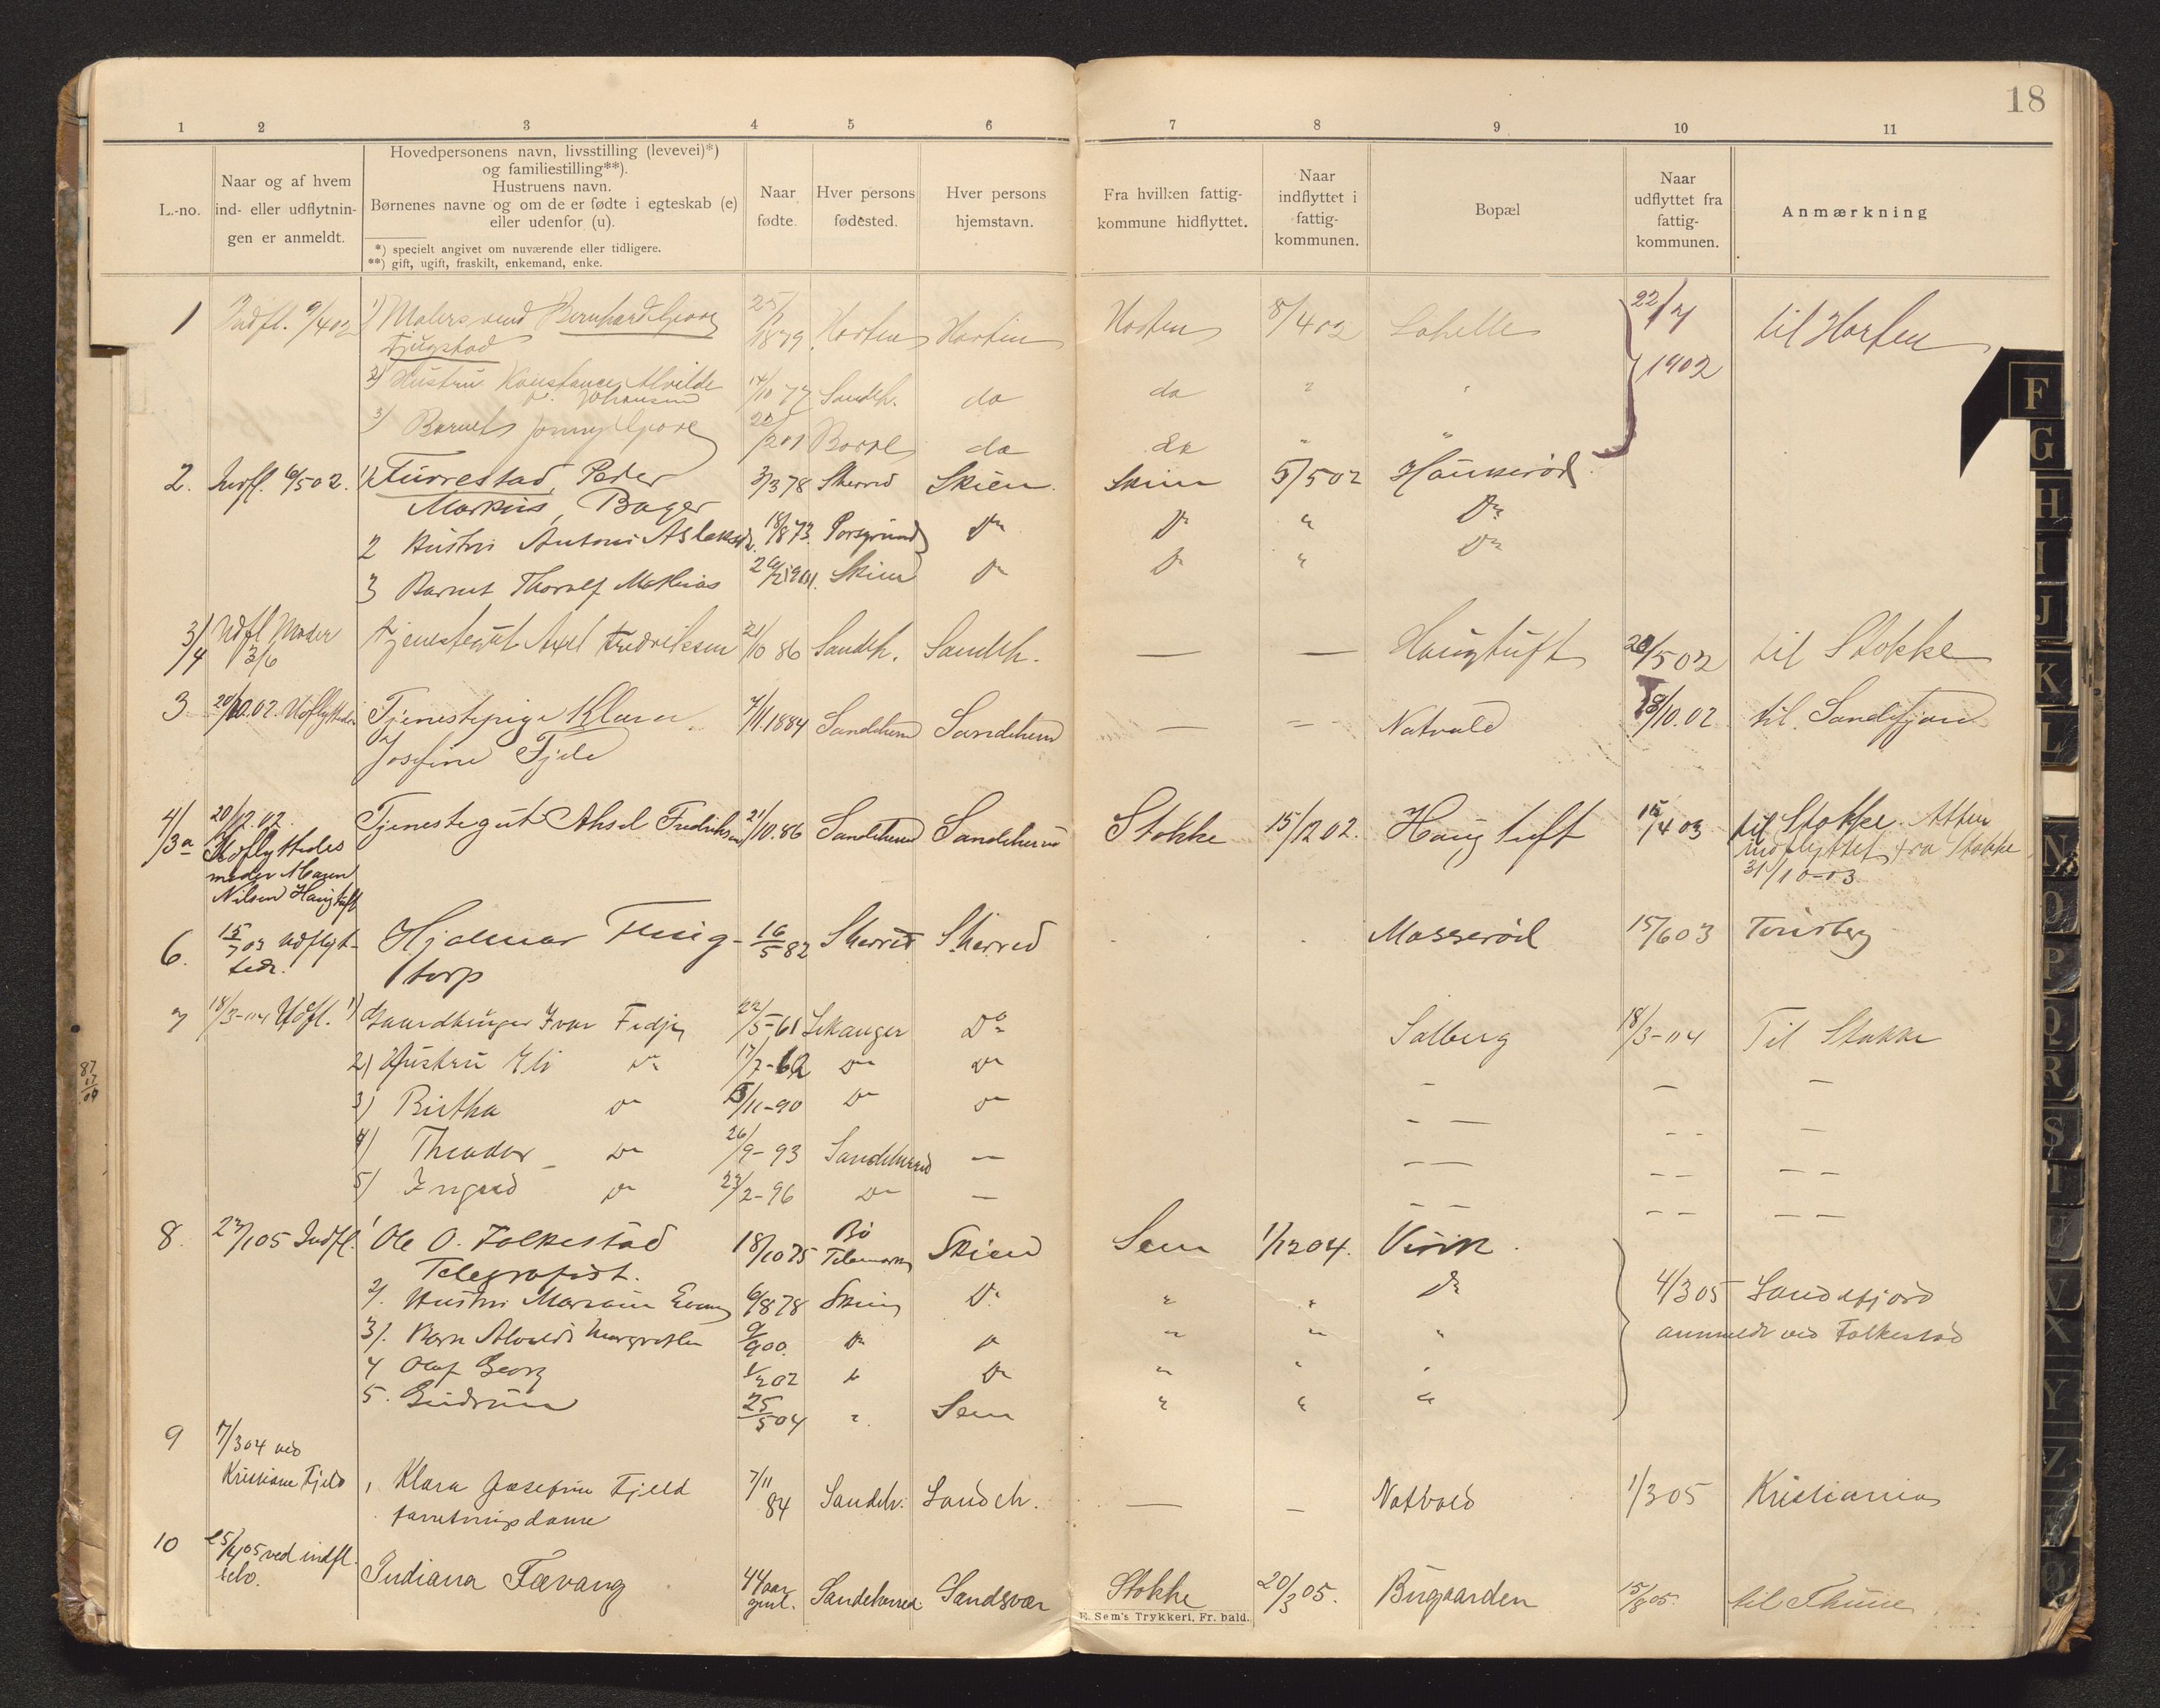 18
1 2 3 4 5 6 7 8 9 10 11
L.-no.
Naar og af hvem
ind- eller udflytnin-
gen er anmeldt.
Hovedpersonens navn, livsstilling (levevei)*)
og familiestilling**).
Hustruens navn.
Børnenes navne og om de er fødte i egteskab (e)
eller udenfor (u).
*) specielt angivet om nuværende eller tidligere.
**) gift, ugift, fraskilt, enkemand, enke.
Naar
fødte.
Hver persons
fødested.
Hver persons
hjemstavn.
Fra hvilken fattig-
kommune hidflyttet.
Naar
indflyttet i
fattig-
kommunen.
Bopæl
Naar
udflyttet fra
fattig-
kommunen.
Anmærkning
1 Indfl. 9/4 02 1) Malersvend Bernhard Georg 25/ 1879 Horten Horten Horten 8/4 02 Lahelle 22/7 1902 til Horten
Fjugstad
2) Hustru Konstance Alvilde 14/10 77 Sandeh. do do "
f. Johansen
3) Barnet Jonny Georg 22/2 01 Borre do do " "
2. Indfl. 6/5 02. 1) Furrestad, Peder 3/3 78 Sherred Skien Skien 5/5 02 Haukerød
Markus, Bager
2 Hustru Antoni Aslaksd. 18/8 73. Porsgrund Do Do " Do
3 Barnet Thoralf Mathias 26/2 1901. Skien Do Do " Do
3/4 Udfl Moder 3/6 Tjenestegut Axel Fredriksen 21/10 86 Sandeh. Sandeh. — — Haugtuft 20/5 02 til Stokke
3 20/10.02. Udflyttede Tjenestepige Klara 7/11 1884 Sandeherred Sandeherred — — Natvald 18/10.02 til Sandefjord
Josefine Fjeld
4/3a 20/12.02. Tjenestegut Aksel Fredriksen 21/10.86 Sandeherred Sandeherred Stokke 15/12 02. Haugtuft 15/4 03 til Stokke Atter
Udflyttedes indflyttet fra Stokke
moder Maren 31/10-03
Nilsen Haugtuft
6. 15/7 03 Udflyt- Hjalmar Thug- 16/5 82 Sherred Sherred Mosserød 15/6 03 Tønsberg
tede. torp
7 18/3-04 Udfl. 1) Gaardbruger Ivar Fedje 22/5-61 Lekanger Do Solberg 18/3-04 Til Stokke
2) Hustru Eli Do 17/7-62 Do Do — — —
3) Birtha Do 5/11-90 Do Do — — — —
4) Theodor Do 26/9-93 Sandeherred — — — — — — —
5) Ingrid Do 23/2-96 Do — — — — — — —
87
17
04
8. 27/1 05 Indfl. 1 Ole O. Folkestad 18/10 75 Bø Telemarken Skien Sem 1/12 04. Virik.
Telegrafist.
2). Hustru 6/8 78 Skien Do " " Do 4/3 05 Sandefjord
3). Barn Margrethe 9/9 00. Do Do " " " anmeldt ved Folkestad
4 Olaf Georg 1/2 02 Do Do " " "
5. Gudrun 25/5 04 " Sem " " "
9 7/3 04 ved
Kristiane Fjeld 1 Klara Josefine Fjeld 7/11 84 Sandeh. Sandeh. — — Natvold 1/3 05 Kristiania
forretningsdame
10 25/4 05 ved indfl.
selv. Indiana Fævang 44 aar gml. Sandeherred Sandsvær Stokke 20/3 05. Bugaarden 15/8 05 til Thune
E. Sem's Trykkeri, Fr. hald.
F
G
H
I
J
K
L
N
O
P
Q
R
S
T
U
V
X
Y
Z
Ø